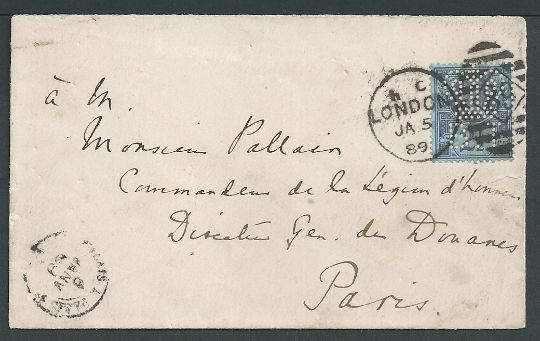 à M.
Monsieur Pallain
Commandeur de la Légion d'honneur
Directeur Gen. des Douanes
Paris.
C
LONDON
JA 5
89